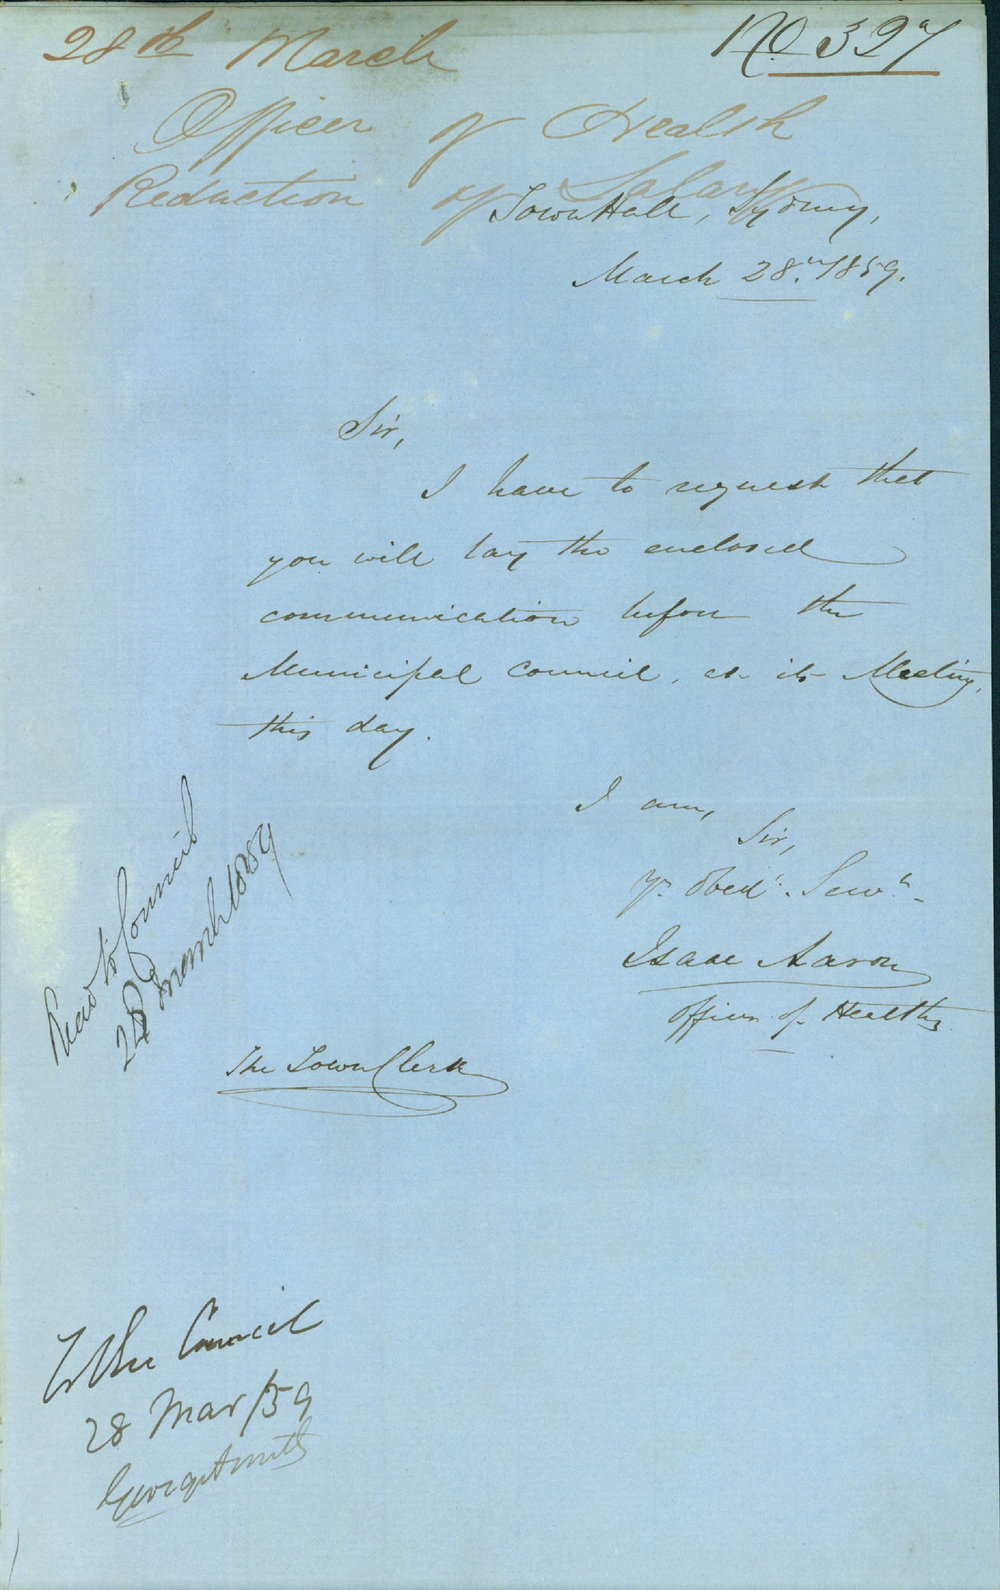 28th March
No 327
Officer of Health
Reduction of Salary
Town Hall, Sydney,
March 28th 1859.
Sir,
I have to request that
you will lay the enclosed
communication before the
Municipal Council, at its Meeting,
this day.
I am,
Sir,
Yr. Obedt. Servt.
Isaac Aaron
Officer of Health
The Town Clerk
Read to Council
28 March 1859
To the Council
28 Mar/59
George Smith